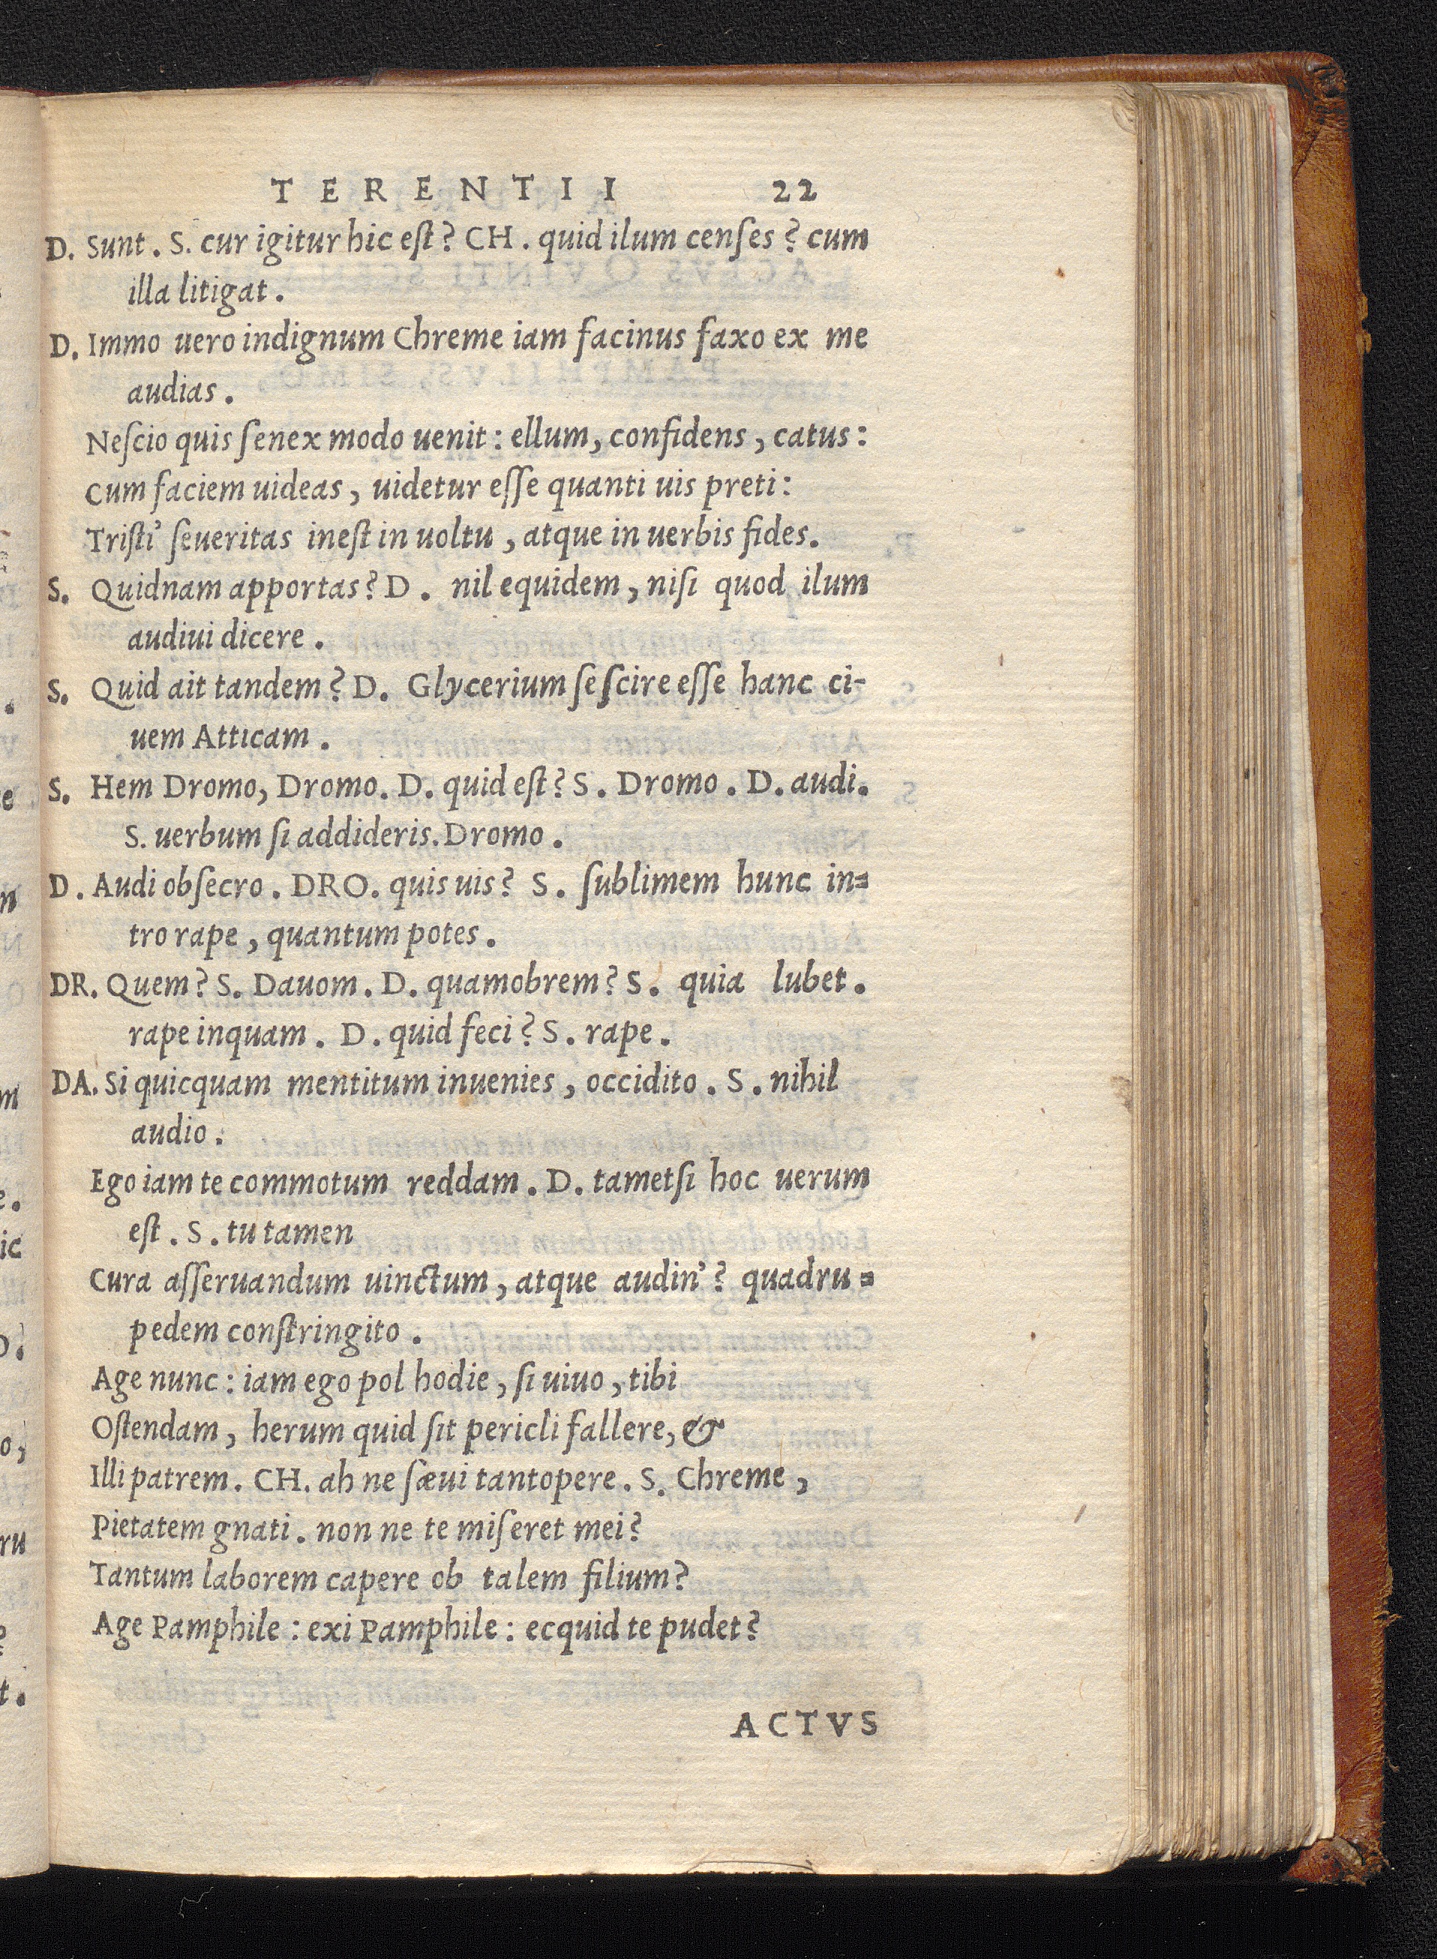 TERENTII 22
D. Sunt. S. cur igitur hic eſt? CH. quid ilum cenſes? cum
illa litigat.
D. Immo uero indignum Chreme iam facinus faxo ex me
audias.
Neſcio quis ſenex modo uenit: ellum, confidens, catus:
Cum faciem uideas, uidetur eſſe quanti uis preti:
Triſti' ſeueritas ineſt in uoltu, atque in uerbis fides.
S. Quidnam apportas? D. nil equidem, niſi quod ilum
audiui dicere.
S. Quid ait tandem? D. Glycerium ſe ſcire eſſe hanc ci-
uem Atticam.
S. Hem Dromo, Dromo. D. quid eſt? S. Dromo. D. audi.
S. uerbum ſi addideris. Dromo.
D. Audi obſecro. DRO. quis uis? S. ſublimem hunc in=
tro rape, quantum potes.
DR. Quem? S. Dauom. D. quamobrem? S. quia lubet.
rape inquam. D. quid feci? S. rape.
DA. Si quicquam mentitum inuenies, occidito. S. nihil
audio.
Ego iam te commotum reddam. D. tametſi hoc uerum
eſt. S. tu tamen
Cura aſſeruandum uinctum, atque audin'? quadru=
pedem conſtringito.
Age nunc: iam ego pol hodie, ſi uiuo, tibi
Oſtendam, herum quid ſit pericli fallere, &
Illi patrem. CH. ah ne ſæui tantopere. S. Chreme,
Pietatem gnati. non ne te miſeret mei?
Tantum laborem capere ob talem filium?
Age Pamphile: exi Pamphile: ecquid te pudet?
ACTVS